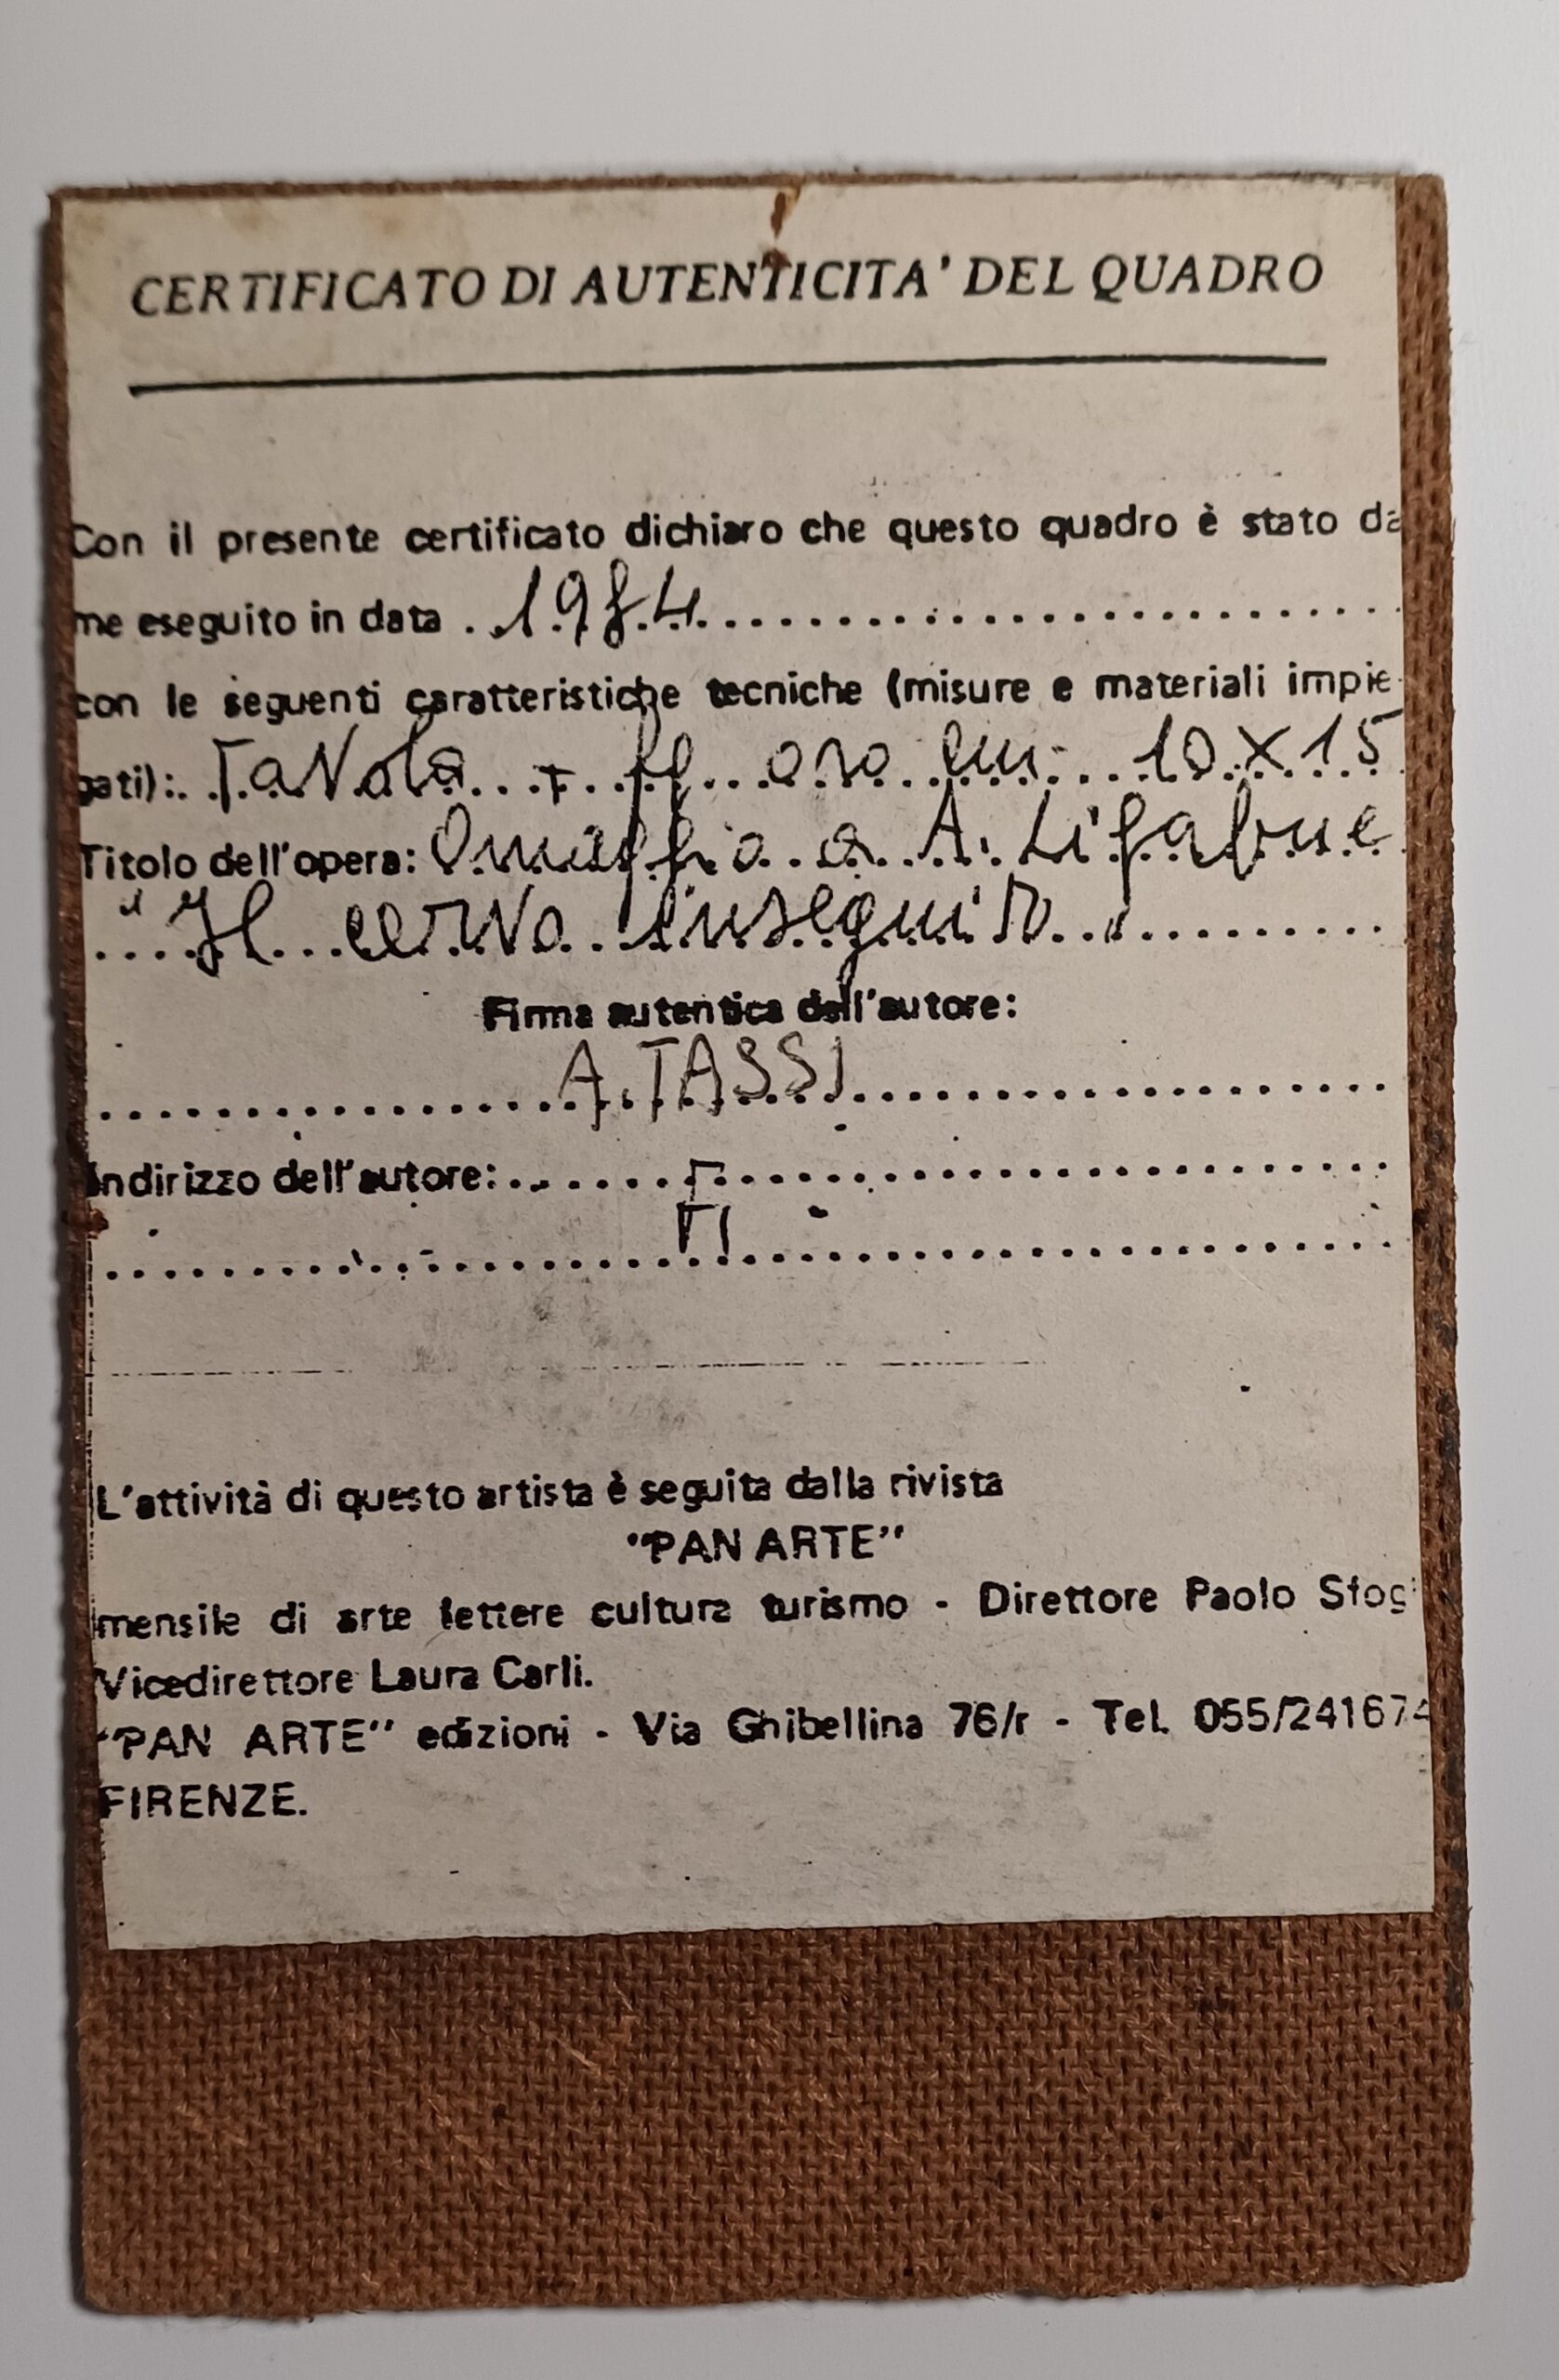 CERTIFICATO DI AUTENTICITA' DEL QUADRO
Con il presente certificato dichiaro che questo quadro è stato da
me eseguito in data . 1984
con le seguenti caratteristiche tecniche (misure e materiali impie-
gati): Tavola + fg oro cm. 10 X 15
Titolo dell'opera: Omaggio a A. Ligabue
"Il cervo inseguito"
Firma autentica dell'autore:
A. TASSI
Indirizzo dell'autore:
FI
L'attività di questo artista è seguita dalla rivista
"PAN ARTE"
mensile di arte lettere cultura turismo - Direttore Paolo
Vicedirettore Laura Carli.
"PAN ARTE" edizioni - Via Ghibellina 76/r - Tel. 055/241674
FIRENZE.